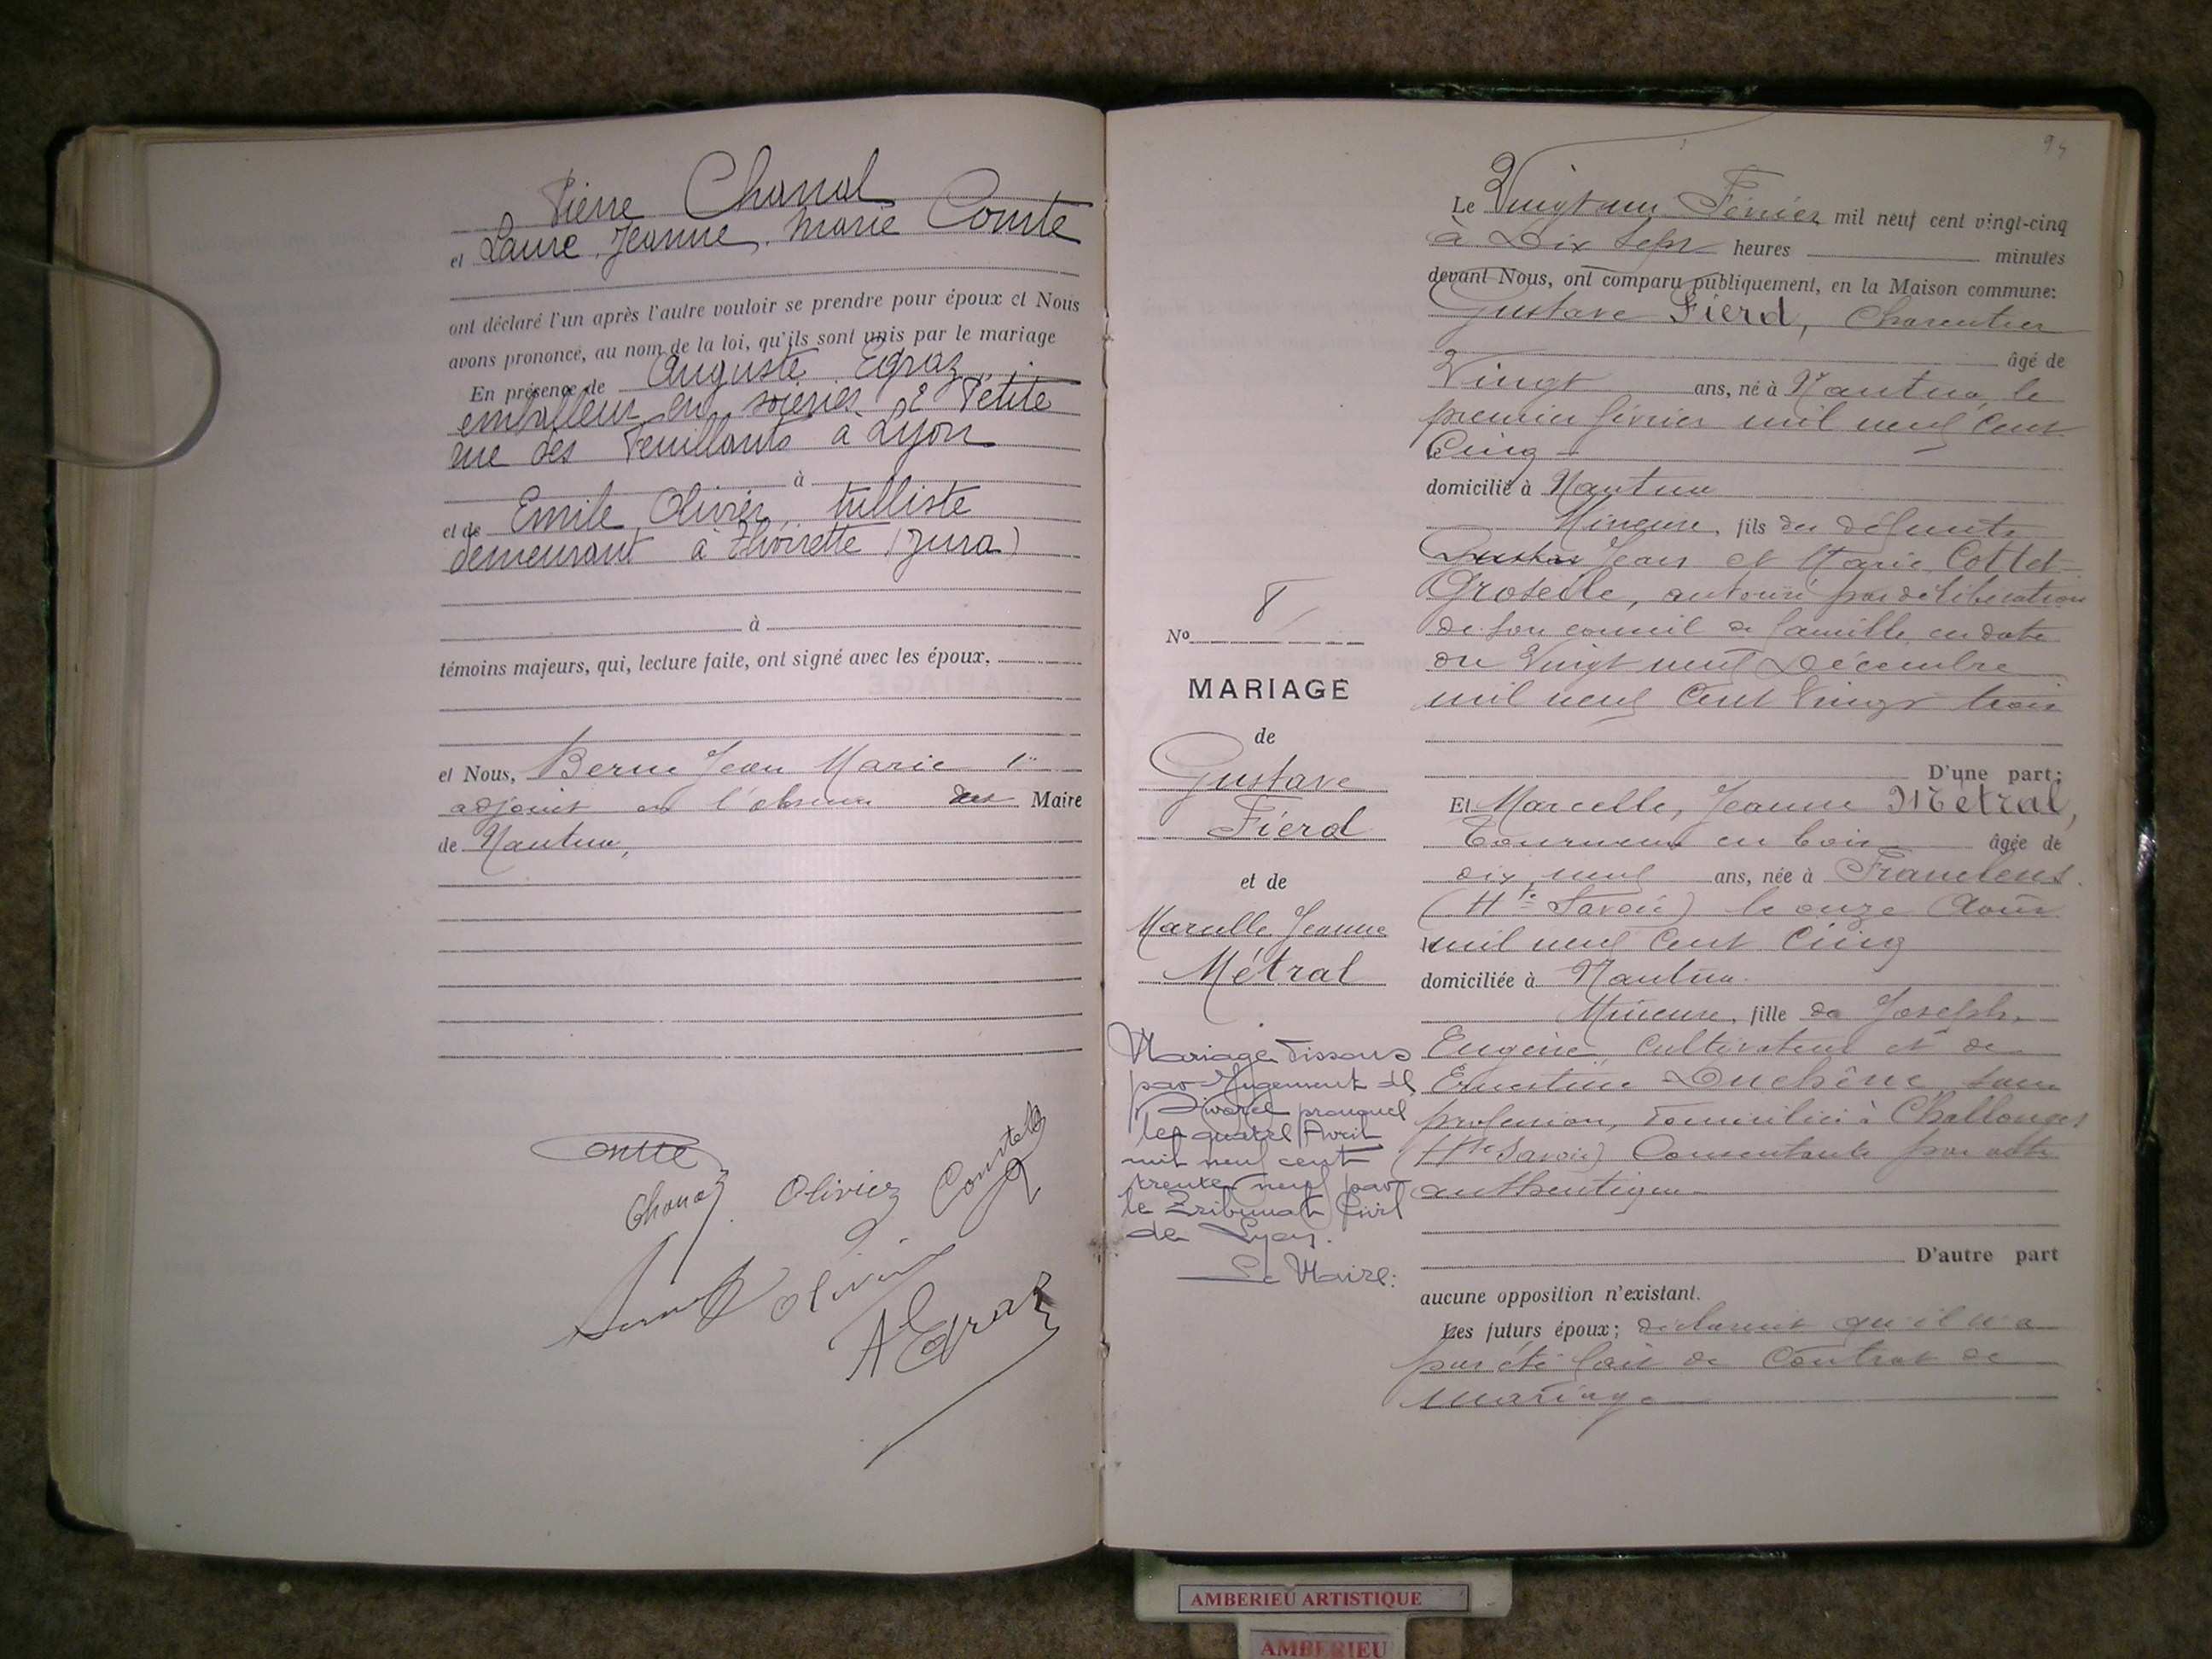 Pierre Chanal
et Laure, Jeanne, Marie Comte
ont déclaré l'un après l'autre vouloir se prendre pour époux et Nous
avons prononcé, au nom de la loi, qu'ils sont unis par le mariage
En présence de Auguste Egraz
emballeur en soieries 2 Petite
rue des Feuillants à Lyon
à
et de Emile Olivier, tulliste
demeurant à Thoirette (Jura)
à
témoins majeurs, qui, lecture faite, ont signé avec les époux,
et Nous, Berne Jean Marie 1er
adjoint en l'absence du Maire
de Nantua,
Comte
Chanal Olivier Comte
Olivier
A Egraz
94
Le Vingt un Février mil neuf cent vingt-cinq
à Dix sept heures minutes
devant Nous, ont comparu publiquement, en la Maison commune:
Gustave Fierd, Charentier
âgé de
Vingt ans, né à Nantua, le
premier février mil neuf cent
Cinq
domicilié à Nantua
Mineur, fils des défunts
Jean et Marie Cottet
Groseille, autorisé par délibération
de son conseil de famille en date
du Vingt neuf Décembre
mil neuf cent vingt trois
D'une part;
Et Marcelle, Jeanne Métral,
Tourneuse en bois âgée de
dix neuf ans, née à Franclens
(Hte Savoie) le onze Août
mil neuf cent Cinq
domiciliée à Nantua
Mineure, fille de Joseph
Eugène, Cultivateur et de
Ernestine Duchêne sans
profession, domiciliés à Challonges
(Hte Savoie) Consentants par acte
authentique
D'autre part
aucune opposition n'existant.
Les futurs époux; déclarent qu'il n'a
pas été fait de Contrat de
mariage
No 8
MARIAGE
de
Gustave
Fierd
et de
Marcelle Jeanne
Métral
Mariage dissous
par Jugement de
Divorce prononcé
le quatre Avril
mil neuf cent
trente neuf par
le Tribunal Civil
de Lyon.
Le Maire:
AMBERIEU ARTISTIQUE
AMBERIEU